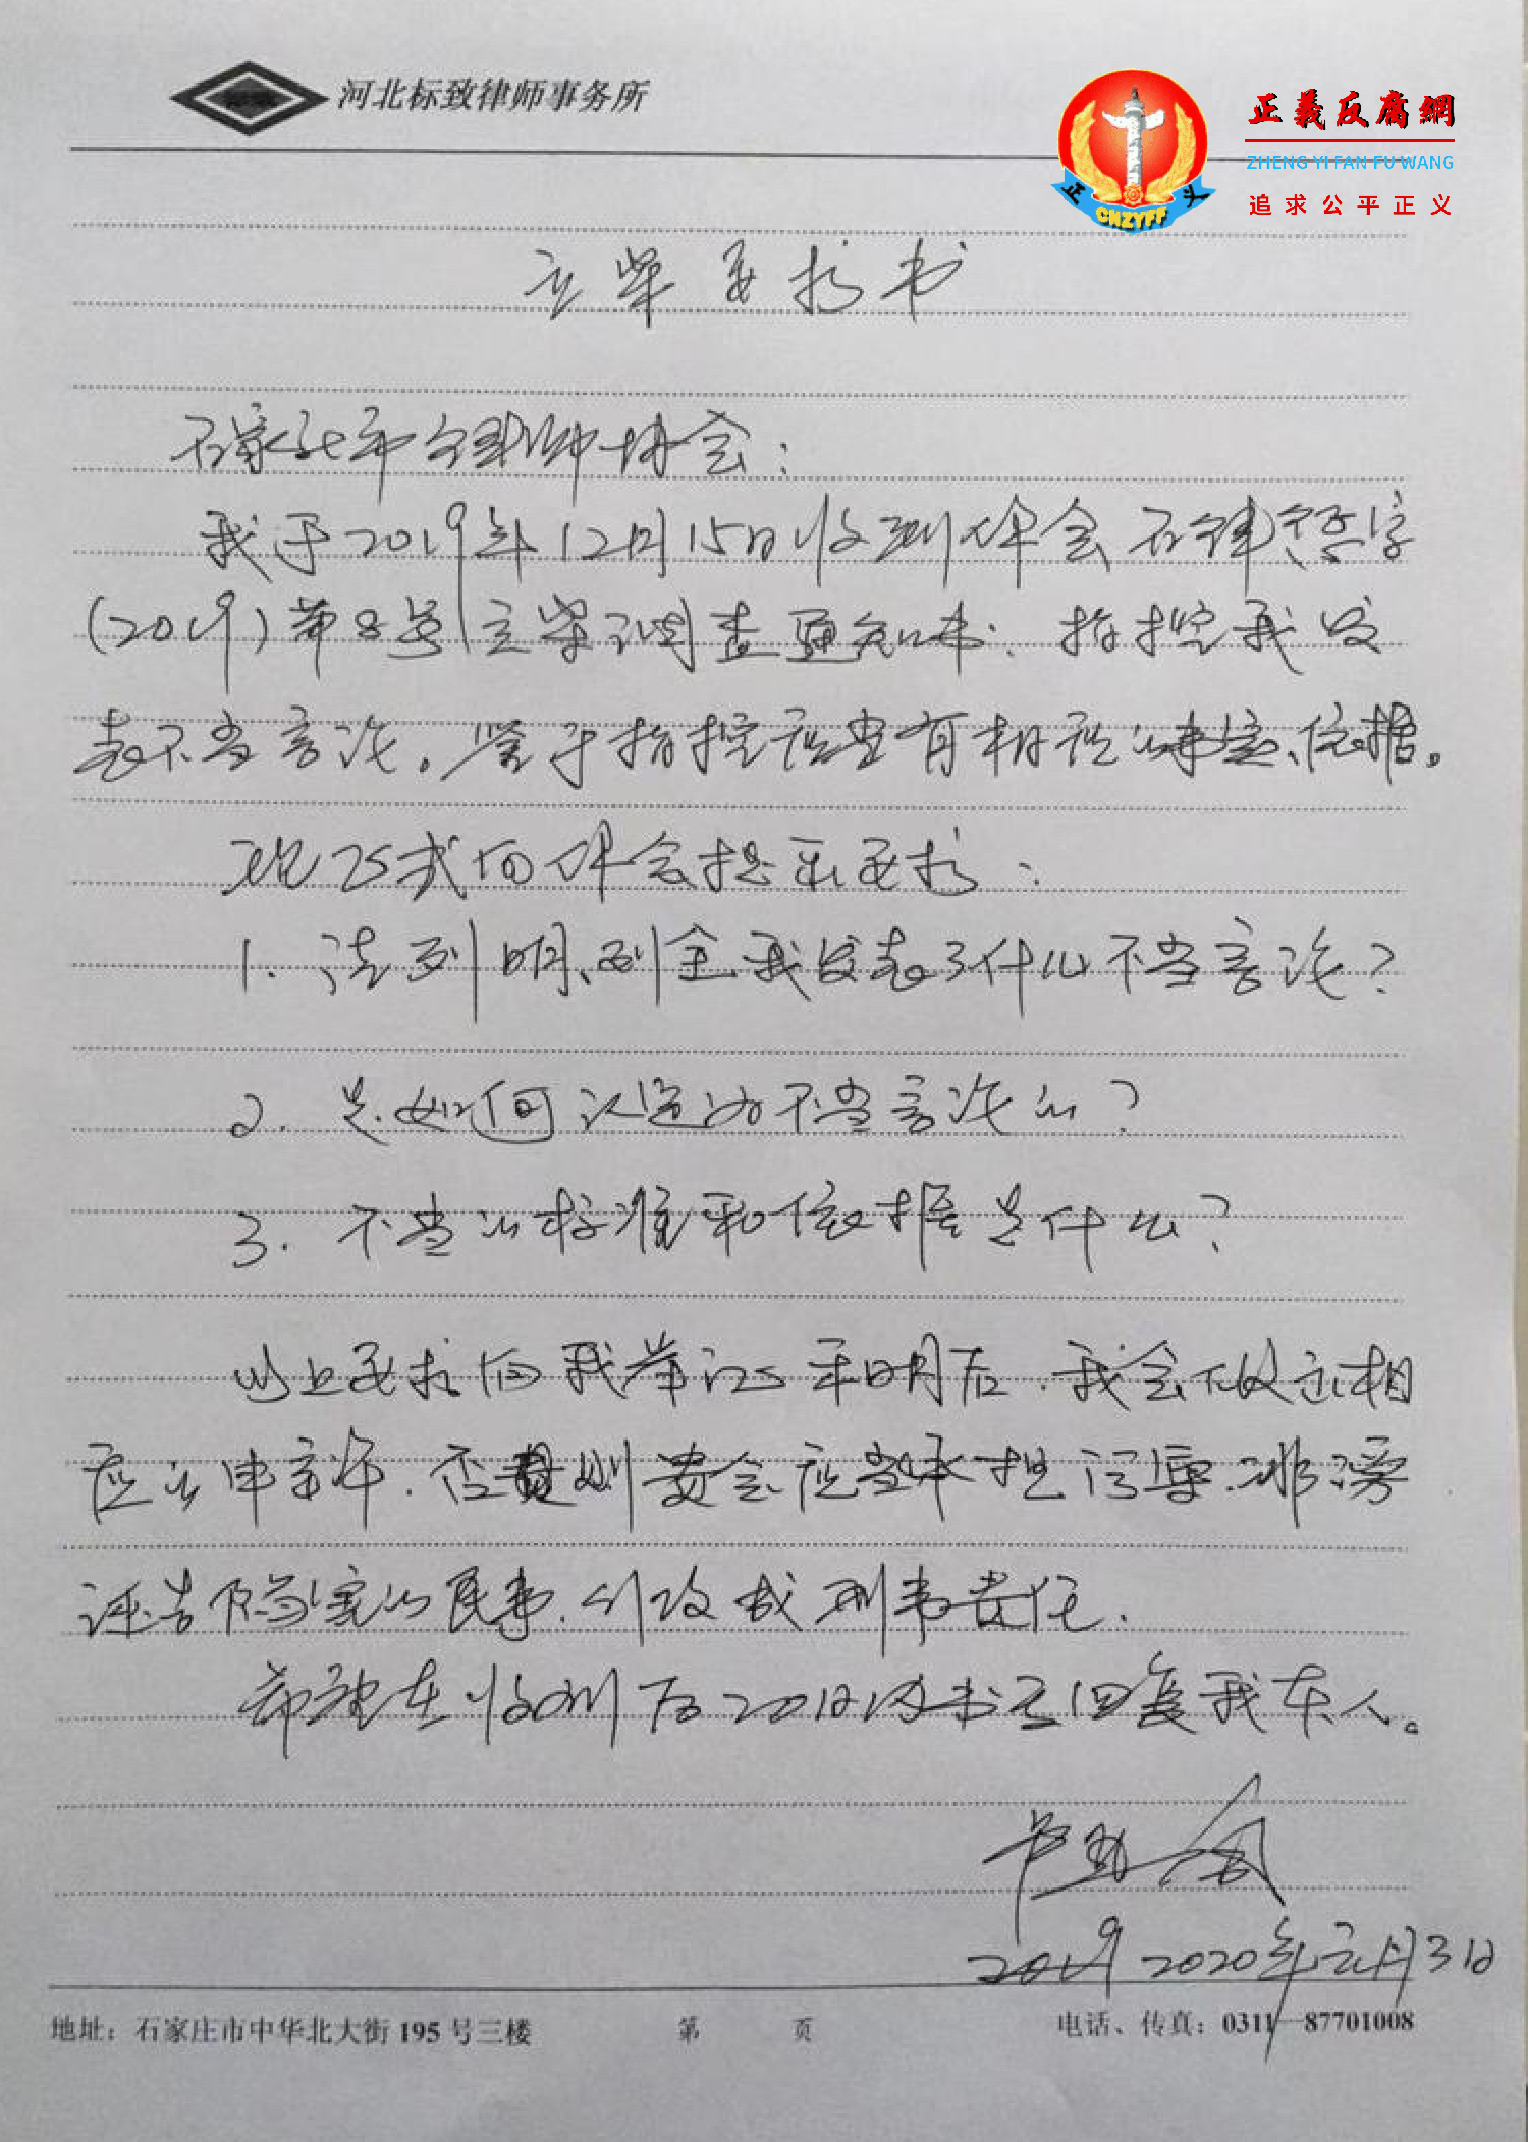 河北标致律师事务所
正義反腐網
ZHENG YI FAN FU WANG
追求公平正义
正 CNZYFF 义
立案要求书
石家庄市律师协会：
我于2019年12月15日收到你会石律字
(2019)第8号立案调查通知书，指控我发
表不当言论。鉴于指控应当有相应的事实、依据。
现正式向你会提出要求：
1. 请列明、列全我发表了什么不当言论？
2. 是如何认定为不当言论的？
3. 不当的标准和依据是什么？
以上要求向我举证、释明后，我会做出相
应的申辩，否则贵会应当承担污辱、诽谤
诬告陷害的民事、行政或刑事责任。
希望在收到后20日内书面回复我本人。
2020年元月3日
地址：石家庄市中华北大街195号三楼 第 页 电话、传真：0311—87701008